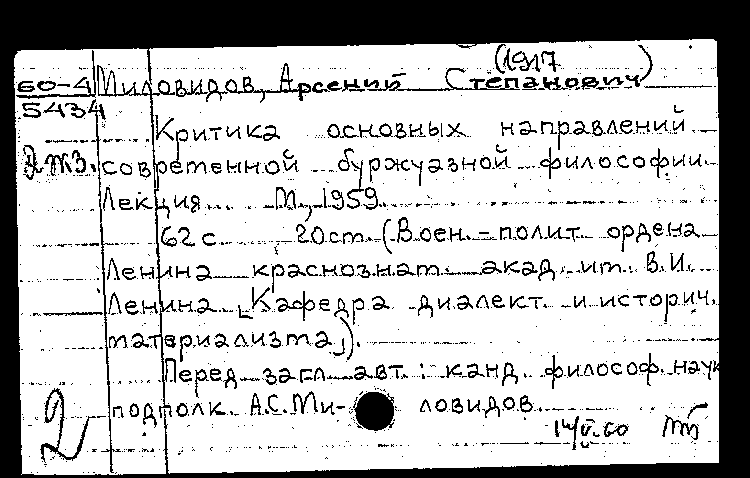 (1917 )
60-4 Миловидов, Арсений Степанович
5434
Критика основных направлений
современной буржуазной философии.
Лекция. М., 1959.
62 с. 20 см. (Воен.-полит. ордена
Ленина краснознам. акад. им. В.И.
Ленина. [Кафедра диалект. и историч.
материализма]).
Перед загл. авт.: канд. философ. наук
подполк. А.С. Ми- ловидов.
2
14/V.60